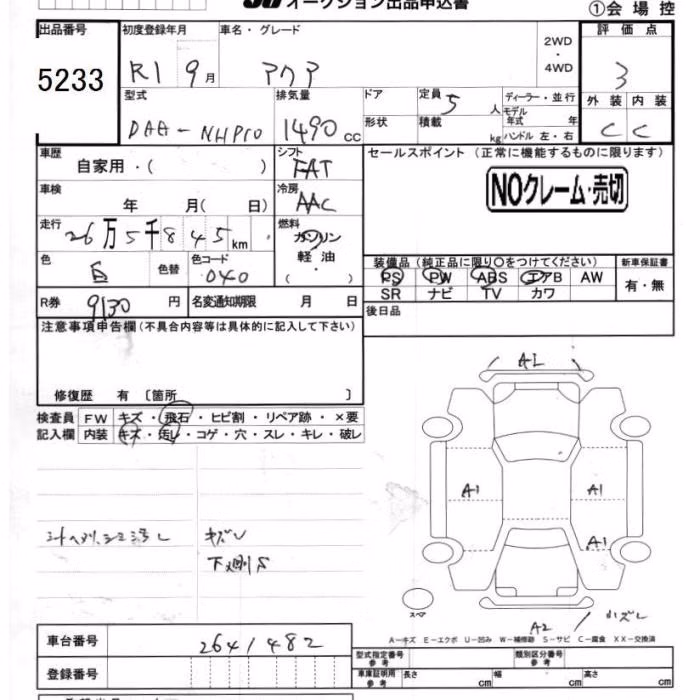 オークション出品申込書
①会場控
出品番号 5233
初度登録年月 R1 9月
車名・グレード アクア
2WD・4WD
評価点 3
型式 DAA-NHP10
排気量 1490 cc
ドア
形状
定員 5 人
積載 kg
ディーラー・並行
モデル年式 年
ハンドル 左・右
外装 内装
C C
車歴 自家用・( )
シフト FAT
セールスポイント (正常に機能するものに限ります)
NOクレーム・売切
車検 年 月( 日)
冷房 AAC
走行 26万5千845km
燃料 ガソリン 軽・油 ( )
色 白 色替
色コード 040
装備品 (純正品に限り○をつけてください)
新車保証書
PS PW ABS エアB AW
SR ナビ TV カワ
有・無
R券 9130 円
名変通知期限 月 日
後日品
注意事項申告欄 (不具合内容等は具体的に記入して下さい)
修復歴 有 〔箇所 〕
検査員 FW キズ・飛石・ヒビ割・リペア跡・×要
記入欄 内装 キズ・汚レ・コゲ・穴・スレ・キレ・破レ
A1
A1
A1
A1
キズレ
スペア
A2
A-キズ E-エクボ U-凹み W-補修跡 S-サビ C-腐食 XX-交換済
車台番号 2641482
登録番号
型式指定番号 参考
類別区分番号 参考
車庫証明用 参考 長さ cm 幅 cm 高さ cm